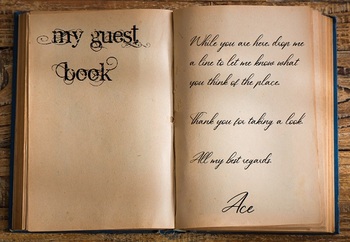 my guest
book
While you are here, drop me
a line to let me know what
you think of the place.
Thank you for taking a look
All my best regards.
Ace